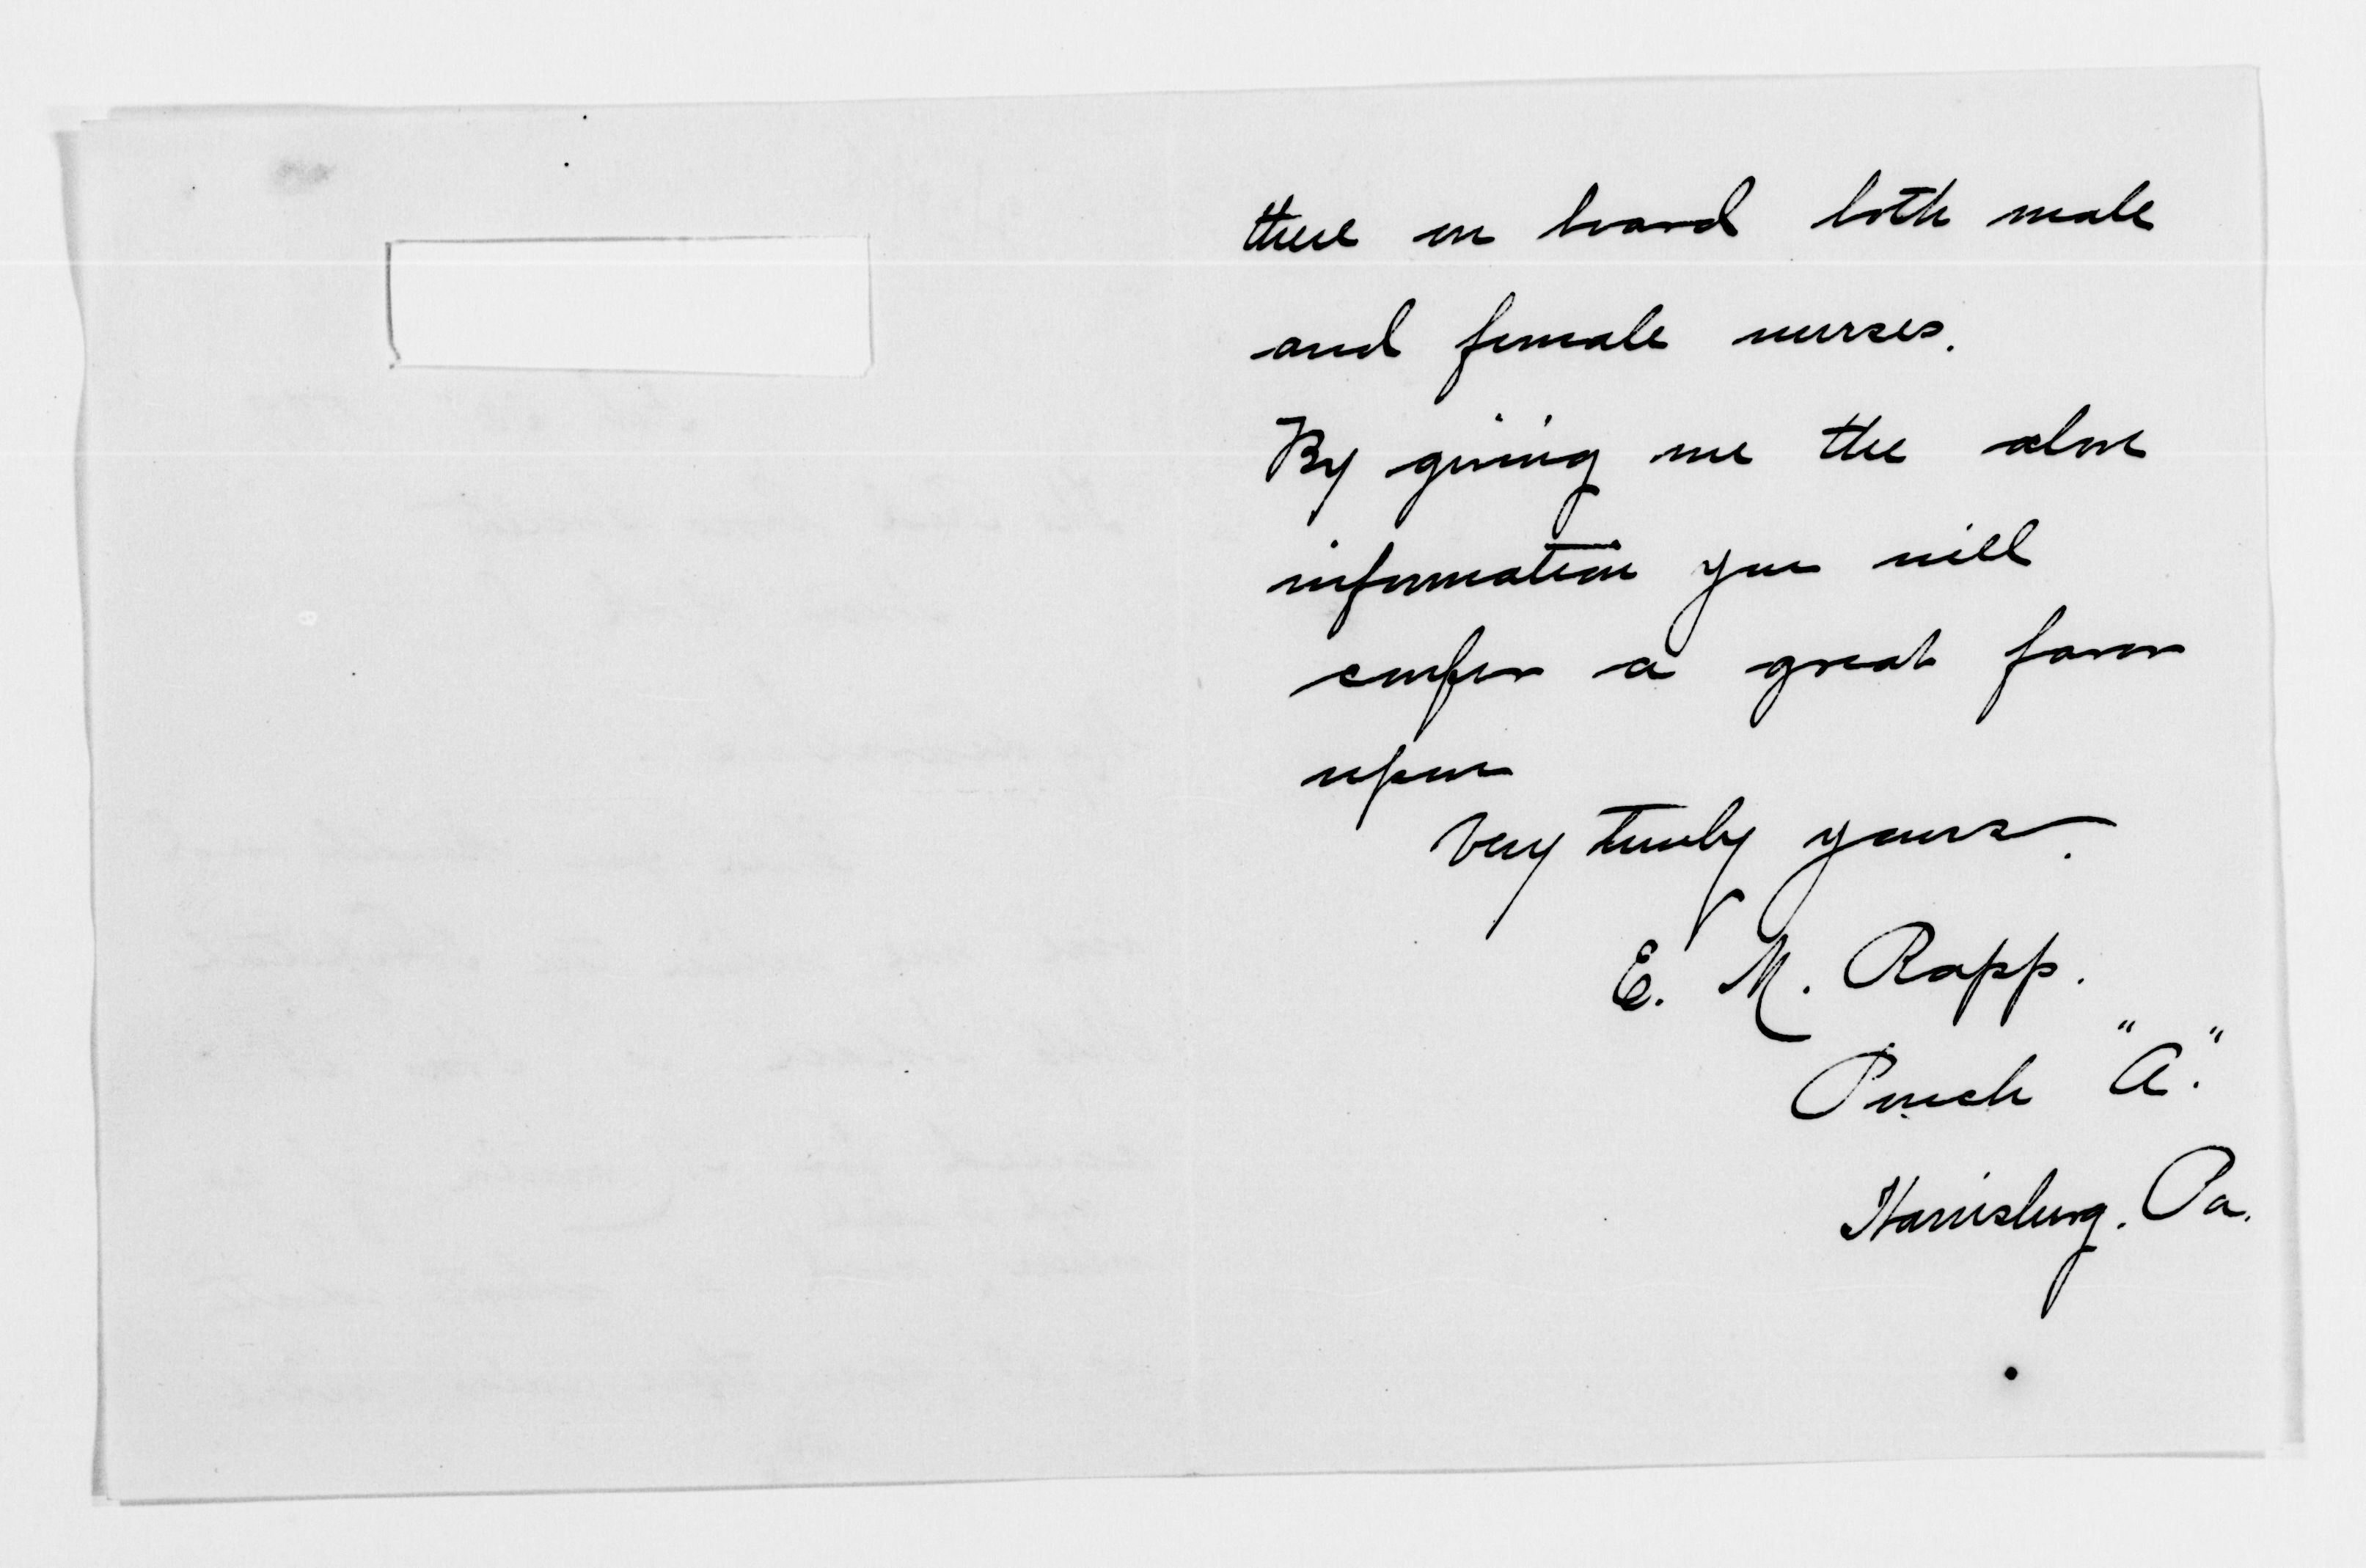 there on board both male
and female nurses.
By giving me the above
information you will
confer a great favor
upon
Very truly yours.
E. M. Rapp.
"A".
Harrisburg. Pa.